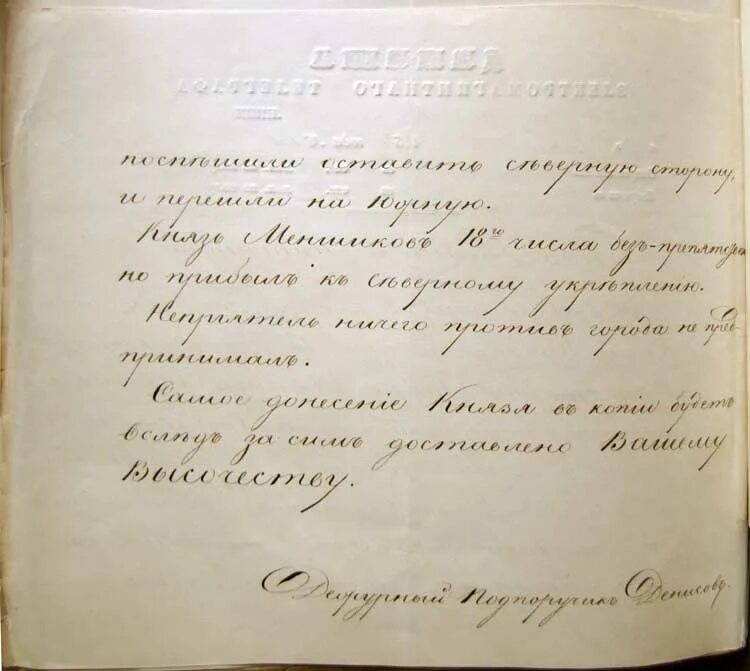 ДЕПЕША
ЭЛЕКТРОМАГНИТНАГО ТЕЛЕГРАФА
поспѣшили оставить сѣверную сторону,
и перешли на Южную.
Князь Меншиковъ 18го числа безъ-препятствен
но прибылъ къ сѣверному укрѣпленію.
Непріятель ничего противъ города не пред-
принималъ.
Самое донесеніе Князя въ копіи будетъ
вслѣдъ за симъ доставлено Вашему
Высочеству.
Дежурный Подпоручикъ Денисовъ.